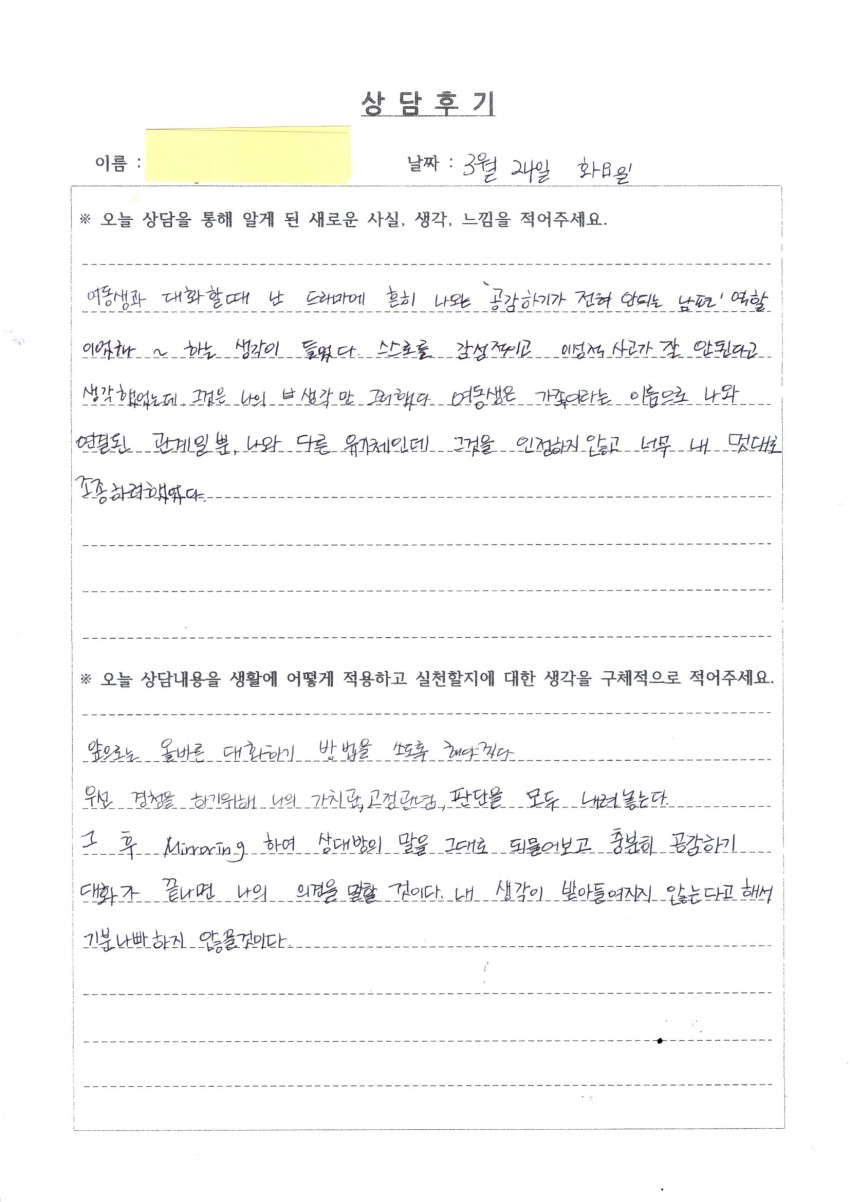 상담후기
이름 :
날짜 : 3월 24일 화요일
※ 오늘 상담을 통해 알게 된 새로운 사실, 생각, 느낌을 적어주세요.
여동생과 대화할때 난 드라마에 흔히 나오는 '공감하기가 전혀 안되는 남편' 역할
이었다 ~ 하는 생각이 들었다. 스스로를 감성적이고 이성적 사고가 잘 안된다고
생각했었는데 그것은 나의 생각만 그러했다 여동생은 가족이라는 이름으로 나와
연결된 관계일뿐, 나와 다른 유기체인데 그것을 인정하지 않고 너무 내 멋대로
조종하려했었다.
※ 오늘 상담내용을 생활에 어떻게 적용하고 실천할지에 대한 생각을 구체적으로 적어주세요.
앞으로는 올바른 대화하기 방법을 쓰도록 해야겠다
우선 경청을 하기위해 나의 가치관, 고정관념, 판단을 모두 내려놓는다.
그 후 Mirroring 하여 상대방의 말을 그대로 되물어보고 충분히 공감하기
대화가 끝나면 나의 의견을 말할 것이다. 내 생각이 받아들여지지 않는다고 해서
기분나빠하지 않을것이다.